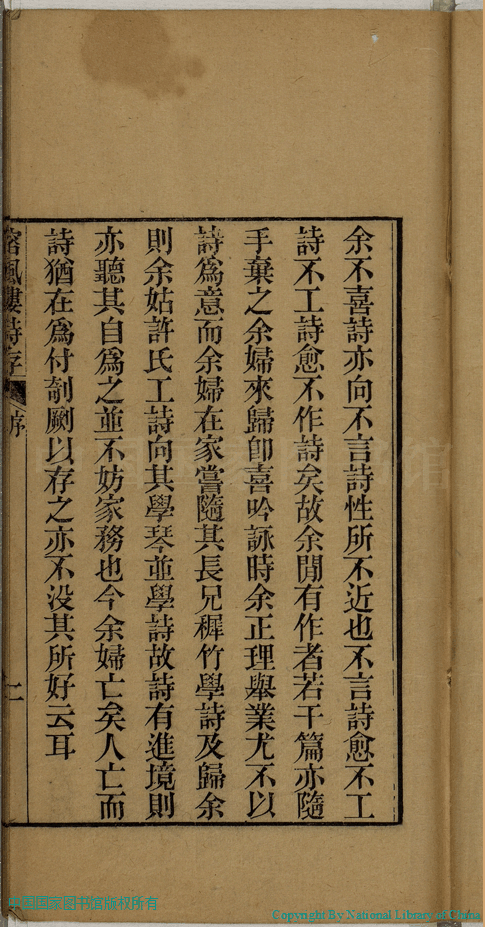 余不喜詩亦向不言詩性所不近也不言詩愈不工
詩不工詩愈不作詩矣故余閒有作者若干篇亦隨
手棄之余婦來歸卽喜吟詠時余正理舉業尤不以
詩爲意而余婦在家嘗隨其長兄穉竹學詩及歸余
則余姑許氏工詩向其學琴並學詩故詩有進境則
亦聽其自爲之並不妨家務也今余婦亡矣人亡而
詩猶在爲付剞劂以存之亦不没其所好云耳
風樓詩存 序
中国国家图书馆版权所有
Copyright By National Library of China